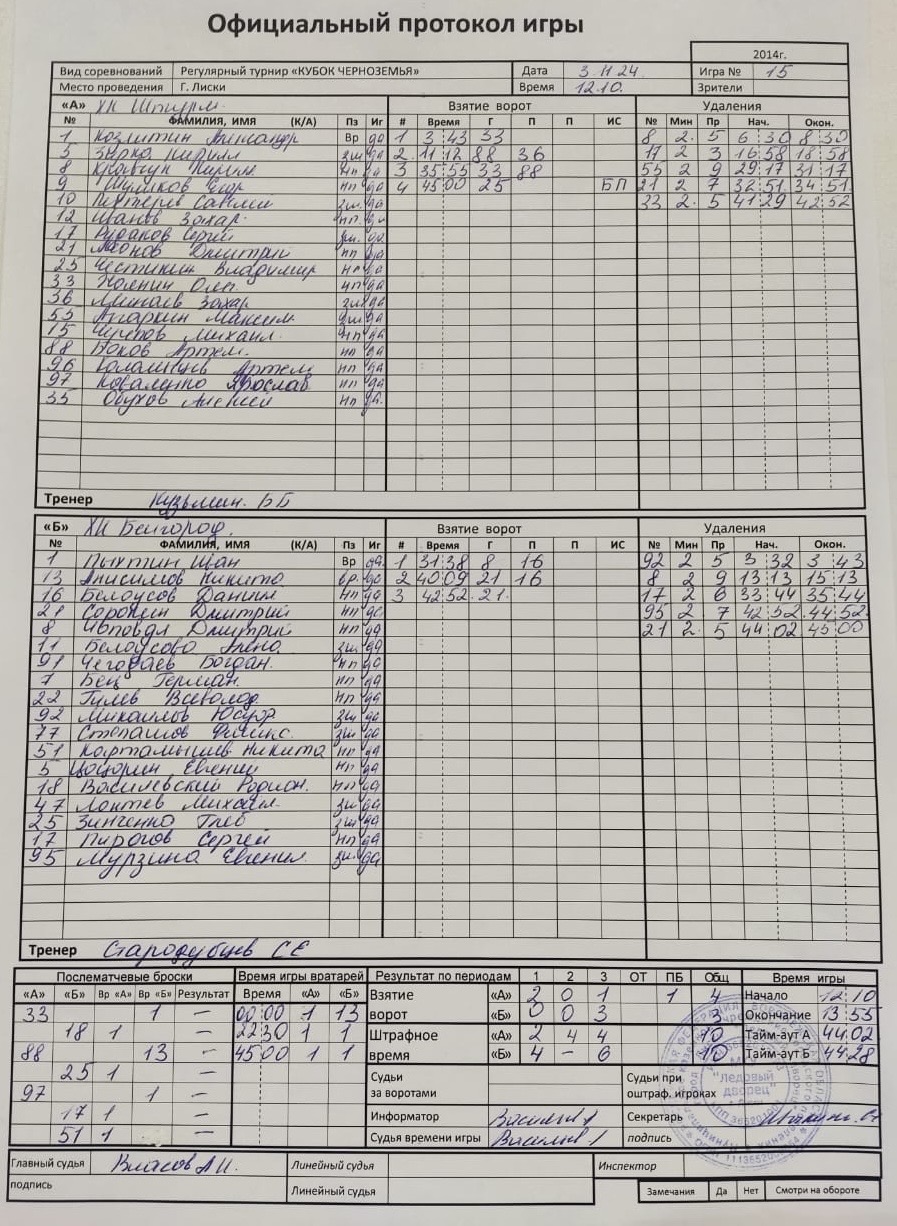 Официальный протокол игры
2014г.
Вид соревнований Регулярный турнир «КУБОК ЧЕРНОЗЕМЬЯ» Дата 3.11.24. Игра № 15
Место проведения Г. Лиски Время 12.10. Зрители
«А» ХК Штурм Взятие ворот Удаления
№ ФАМИЛИЯ, ИМЯ (К/А) Пз Иг # Время Г П П ИС № Мин Пр Нач. Окон.
1 Козлитин Александр Вр да 1 3 43 33 8 2 5 6 30 8 30
5 Зырко Кирилл зщ да 2 11 12 88 36 17 2 3 16 58 18 58
8 Кравчук Кирилл нп да 3 35 55 33 88 55 2 9 29 17 31 17
9 Шумков Егор нп да 4 45 00 25 БП 21 2 7 32 51 34 51
10 Савелий зщ да 33 2 5 41 29 42 52
12 Иванов Захар нп да
17 Рудаков Сергей зщ да
21 Леонов Дмитрий нп да
25 Честикин Владимир нп да
33 Олег нп да
36 Минаев Захар зщ да
55 Агаркин Максим зщ да
15 Черепов Михаил нп да
88 Боков Артем нп да
96 Артем нп да
97 Коваленко Ярослав нп да
35 Обухов Алексей нп да
Тренер Кузьмин. ББ
«Б» ХК Белгород Взятие ворот Удаления
№ ФАМИЛИЯ, ИМЯ (К/А) Пз Иг # Время Г П П ИС № Мин Пр Нач. Окон.
1 Пыхтин Иван Вр да 1 31 38 8 16 92 2 5 3 32 3 43
13 Анисимов Никита вр да 2 40 09 21 16 8 2 9 13 13 15 13
16 Белоусов Данил нп да 3 42 52 21 17 2 6 33 44 35 44
21 Сорокин Дмитрий нп да 95 2 7 42 52 44 52
8 Дмитрий нп да 21 2 5 44 02 45 00
11 Белоусова зщ да
91 Чегодаев Богдан нп да
7 Бец Герман нп да
22 Гилев Всеволод нп да
92 Михайлов зщ да
77 Степанов Феликс зщ да
51 Картамышев Никита нп да
5 Евгений нп да
18 Василевский Родион нп да
47 Лаптев Михаил зщ да
25 Зинченко Глеб зщ да
17 Пирогов Сергей нп да
95 Мурзина Евгения зщ да
Тренер Стародубцев СЕ
Послематчевые броски Время игры вратарей Результат по периодам 1 2 3 ОТ ПБ Общ Время игры
«А» «Б» Вр «А» Вр «Б» Результат Время «А» «Б» Взятие ворот «А» 2 0 1 1 4 Начало 12 10
33 1 – 00 00 1 13 «Б» 0 0 3 3 Окончание 13 55
18 1 – 22 30 1 1 Штрафное время «А» 2 4 4 10 Тайм-аут А 44.02
88 13 – 45 00 1 1 «Б» 4 – 6 10 Тайм-аут Б 44:28
25 1 – Судьи за воротами Судьи при оштраф. игроках
97 1 –
17 1 – Информатор Секретарь
51 1 – Судья времени игры подпись
"Ледовый дворец"
Главный судья Власов А.И. Линейный судья Инспектор
подпись Линейный судья Замечания Да Нет Смотри на обороте